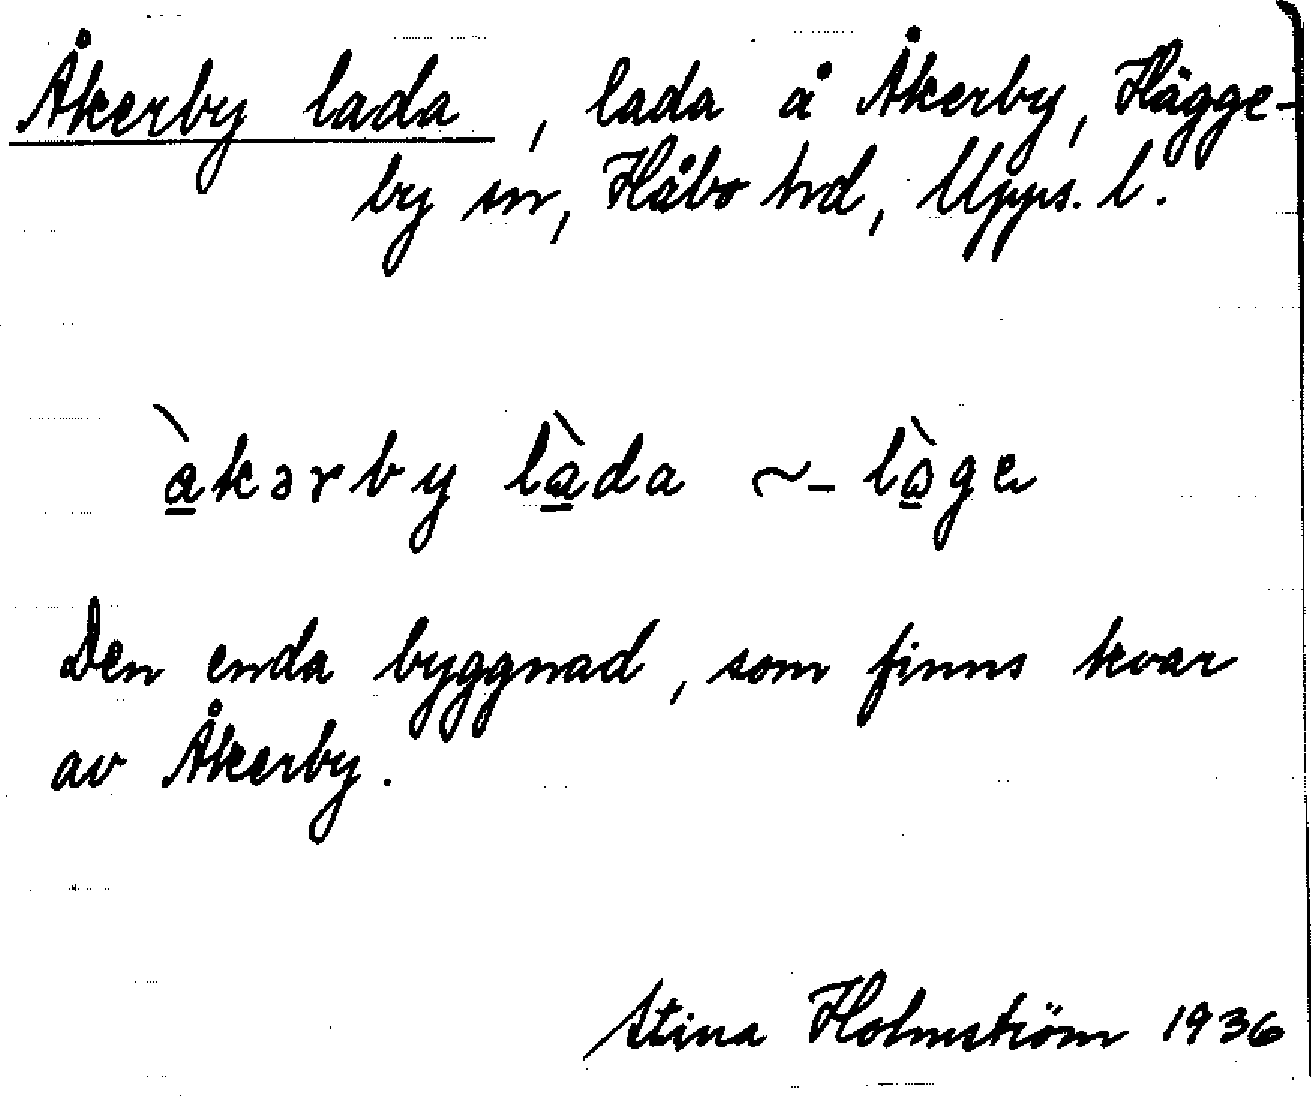 Åkerby lada, lada å Åkerby, Hägge-
by sn, Håbo hd, Upps. l.
àkərby làda ~ - 
Den enda byggnad, som finns kvar
av Åkerby.
Stina Holmström 1936